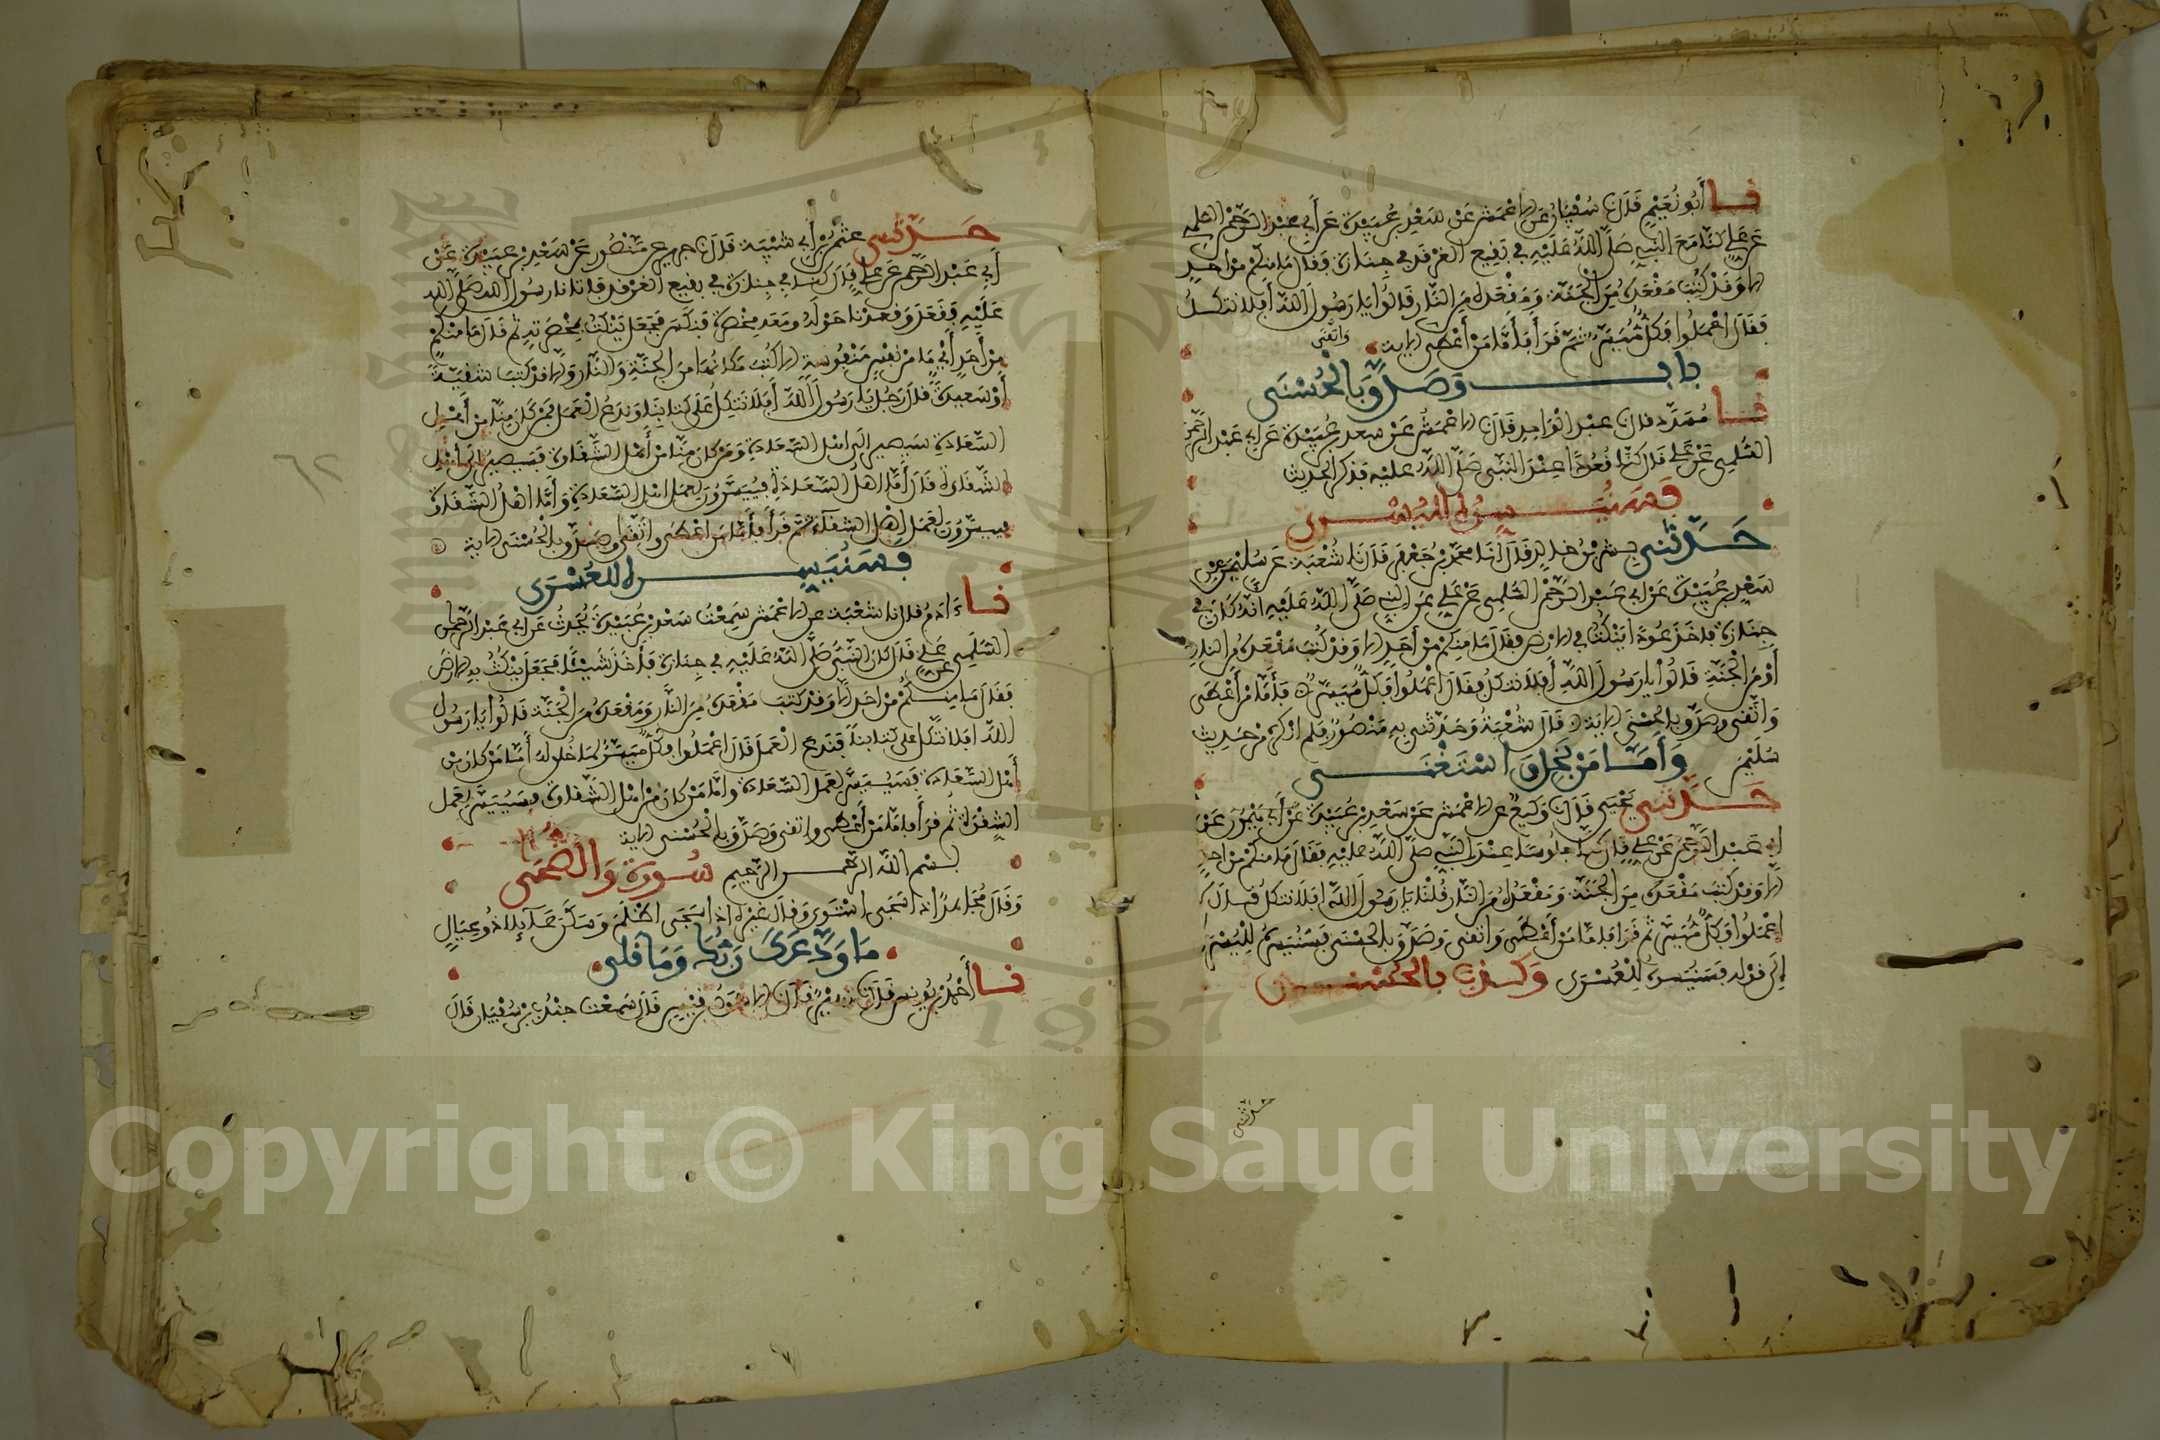 نا أبو نعيم قال نا سفيان عن الاعمش عن سعد بن عبيدة عن أبي عبد الرحمن السلمي
عن علي كنا مع النبي صلى الله عليه في بقيع الغرقد في جنازة فقال ما منكم من احد
الا وقد كتب مقعده من الجنة ومقعده من النار قالوا يا رسول الله أفلا نتكل
فقال اعملوا فكل ميسر ثم قرأ فأما من أعطى واتقى الاية
باب وصدق بالحسنى
نا مسدد قال نا عبد الواحد قال نا الاعمش عن سعد بن عبيدة عن ابي عبد الرحمن
السلمي عن علي قال كنا قعودا عند النبي صلى الله عليه فذكر الحديث
فسنيسره لليسرى
حدثني بشر بن خالد قال أنا محمد بن جعفر قال نا شعبة عن سليمن عن
سعد بن عبيدة عن ابي عبد الرحمن السلمي عن علي عن النبي صلى الله عليه انه كان في
جنازة فاخذ عودا ينكت في الارض فقال ما منكم من أحد الا وقد كتب مقعده من النار
أو من الجنة قالوا يا رسول الله أفلا نتكل فقال اعملوا فكل ميسر فأما من أعطى
واتقى وصدق بالحسنى الاية قال شعبة وحدثني به منصور فلم انكره من حديث
سليمن وأما من بخل واستغنى
حدثني يحيى قال نا وكيع عن الاعمش عن سعد بن عبيدة عن أبي
عبد الرحمن عن علي قال كنا جلوسا عند النبي صلى الله عليه فقال ما منكم من احد
الا وقد كتب مقعده من الجنة ومقعده من النار قلنا يا رسول الله افلا نتكل قال لا
اعملوا فكل ميسر ثم قرا فاما من أعطى واتقى وصدق بالحسنى فسنيسره لليسرى
إلى قوله فسنيسره للعسرى وكذب بالحسنى
حدثني
حدثني عثمن بن أبي شيبة قال نا جرير عن منصور عن سعد بن عبيدة عن
أبي عبد الرحمن عن علي قال كنا في جنازة في بقيع الغرقد فاتانا رسول الله صلى الله
عليه فقعد وقعدنا حوله ومعه مخصرة فنكس فجعل ينكت بمخصرته ثم قال ما منكم
من أحد أي ما من نفس منفوسة الا كتب مكانها من الجنة والنار والا قد كتبت شقية
أو سعيدة قال رجل يا رسول الله أفلا نتكل على كتابنا وندع العمل فمن كان منا من أهل
السعادة سيصير الى اهل السعادة ومن كان منا من أهل الشقاوة فسيصير الى اهل
الشقاوة قال أما اهل السعادة فييسرون لعمل اهل السعادة وأما اهل الشقاوة
فييسرون لعمل اهل الشقاء ثم قرأ فأما من اعطى واتقى وصدق بالحسنى الاية
فسنيسره للعسرى
نا ءادم قال نا شعبة عن الاعمش سمعت سعد بن عبيدة يحدث عن ابي عبد الرحمن
السلمي عن علي قال كان النبي صلى الله عليه في جنازة فأخذ شيئا فجعل ينكت به الارض
فقال ما منكم من احد الا وقد كتب مقعده من النار ومقعده من الجنة قالوا يا رسول
الله افلا نتكل على كتابنا وندع العمل قال اعملوا فكل ميسر لما خلق له أما من كان من
أهل السعادة فسييسر لعمل السعادة واما من كان من اهل الشقاوة فسييسر لعمل
الشقوة ثم قرأ فاما من أعطى واتقى وصدق بالحسنى الاية
بسم الله الرحمن الرحيم سورة والضحى
وقال مجاهد اذا سجى استوى وقال غيره اذا سجى اظلم وسكن عائلا ذو عيال
ما ودعك ربك وما قلى
نا أحمد بن يونس قال نا زهير قال نا الاسود بن قيس قال سمعت جندب بن سفيان قال
Copyright © King Saud University
1957